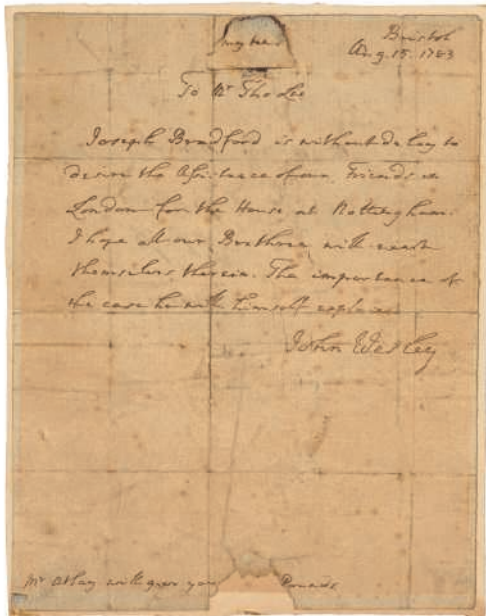 Bristol
Aug. 15. 1783
To Mr Tho Lee
Joseph Bradford is without delay to
desire the Assistance of our Friends in
London for the House at Nottingham.
I hope all our Brethren will exert
themselves therein. The importance of
the case he will himself explain.
John Wesley
Mr Atlay will give you Pounds